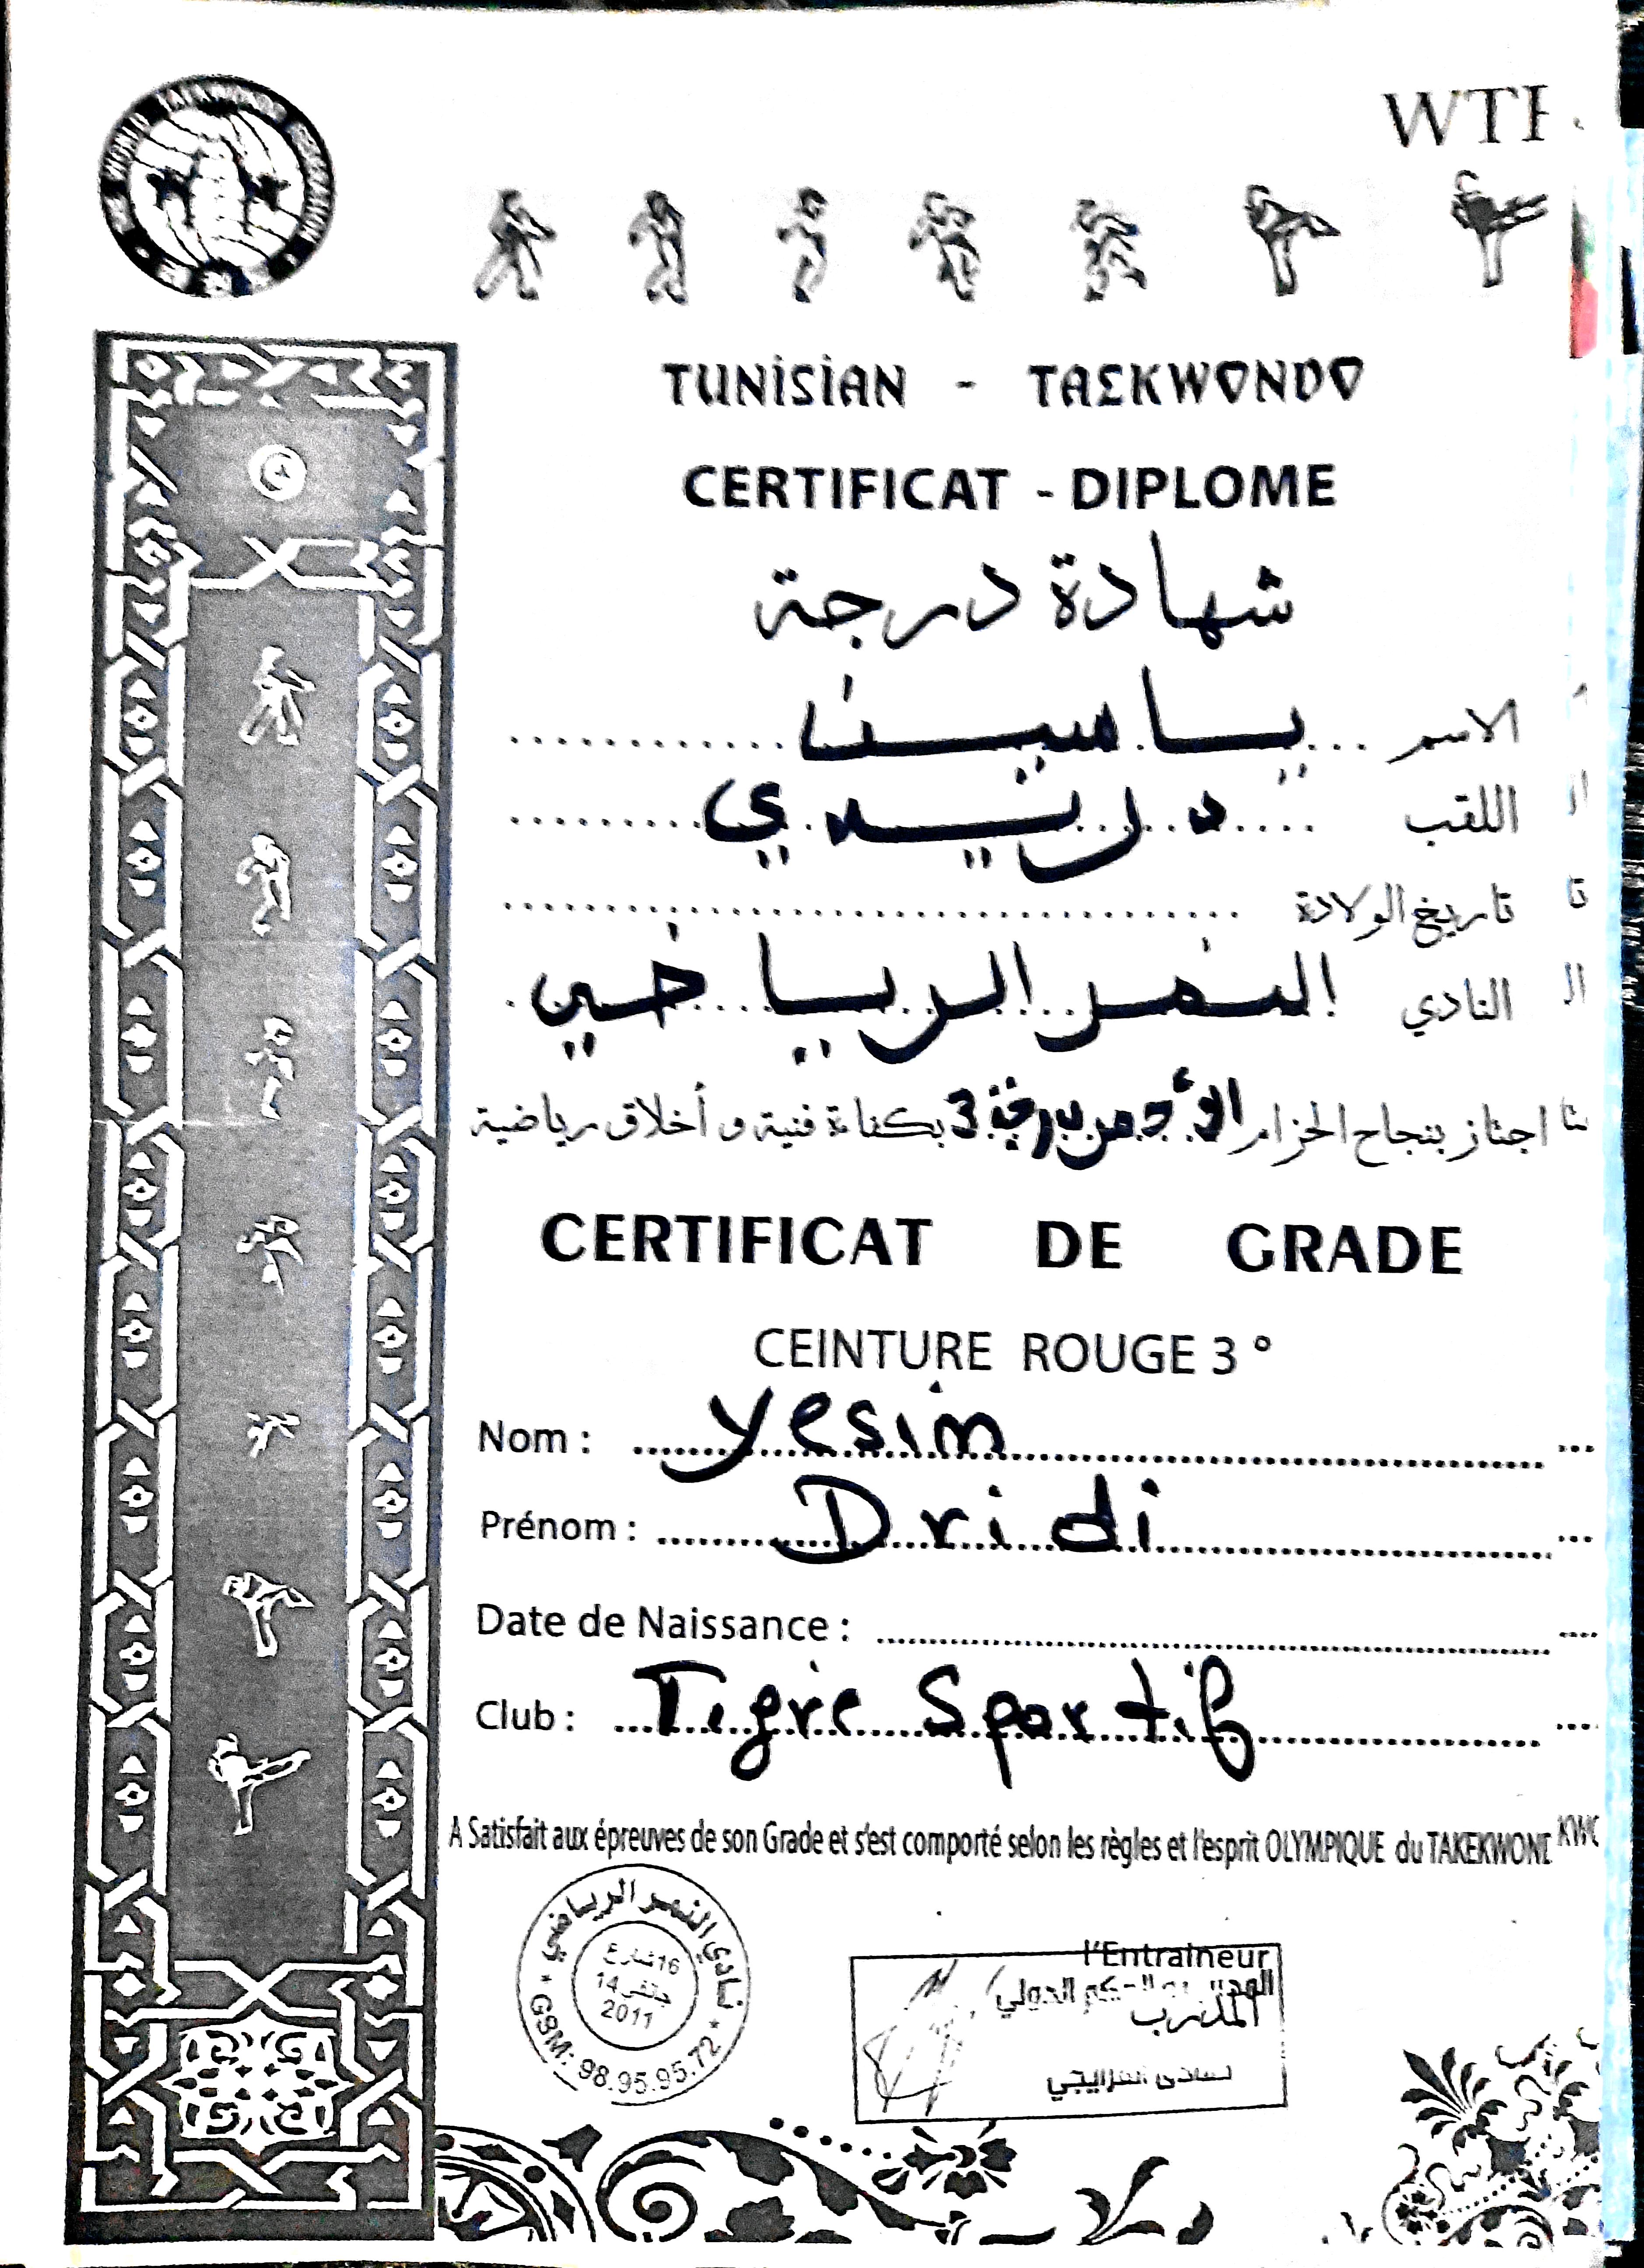 WTF
WORLD TAEKWONDO FEDERATION
TUNISIAN - TAEKWONDO
CERTIFICAT - DIPLOME
شهادة درجة
الاسم ياسين
اللقب دريدي
تاريخ الولادة
النادي النمر الرياضي
اجتاز بنجاح الحزام الأحمر درجة 3 بكفاءة فنية و أخلاق رياضية
CERTIFICAT DE GRADE
CEINTURE ROUGE 3 °
Nom : Yesin
Prénom : Dridi
Date de Naissance :
Club : Tigre Sportif
A Satisfait aux épreuves de son Grade et s'est comporté selon les règles et l'esprit OLYMPIQUE du TAKEKWOND
نادي النمر الرياضي
16 شارع
14 جانفي
2011
GSM: 98.95.95.72
l'Entraineur
الدولي
المدرب